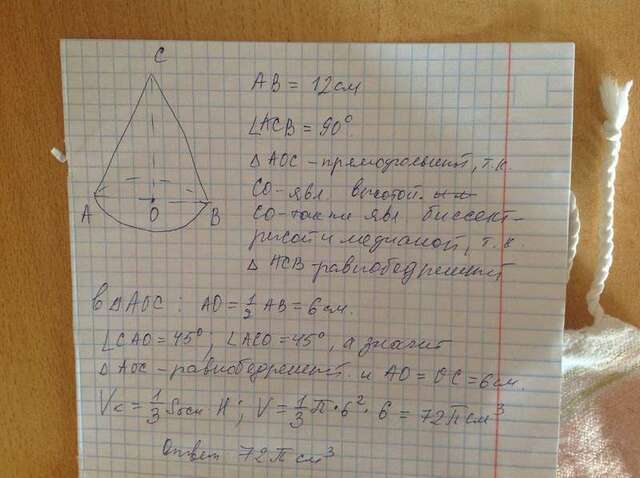 C
A
O
B
AB = 12 см
∠ACB = 90°
△ AOC - прямоугольный, т.к.
CO - явл высотой.
CO - так ти явл биссект-
рисой и медианой, т.к.
△ ACB равнобедренный
в △ AOC : AO = 1/2 AB = 6 см.
∠CAO = 45°; ∠ACO = 45°, а значит
△ AOC - равнобедренный и AO = OC = 6 см.
Vк = 1/3 Sосн · H; V = 1/3 π · 6² · 6 = 72 π см³
Ответ 72 π см³